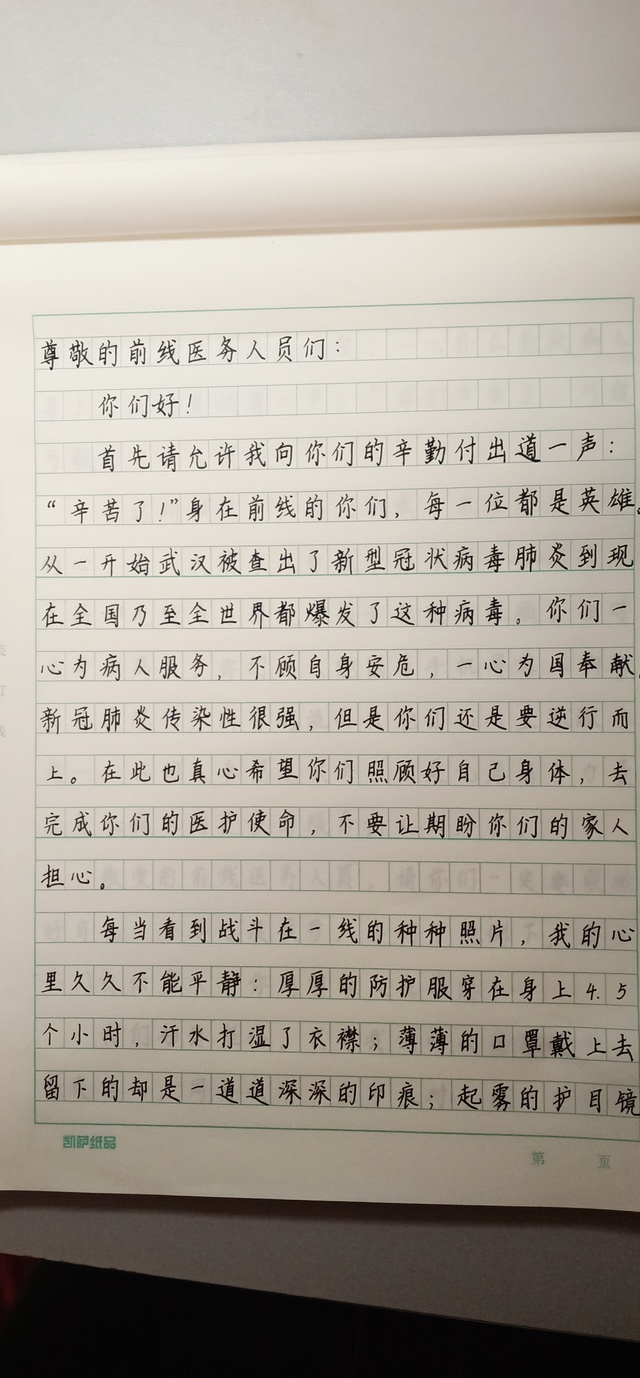 尊敬的前线医务人员们：
你们好！
首先请允许我向你们的辛勤付出道一声：
“辛苦了！”身在前线的你们，每一位都是英雄。
从一开始武汉被查出了新型冠状病毒肺炎到现
在全国乃至全世界都爆发了这种病毒。你们一
心为病人服务，不顾自身安危，一心为国奉献。
新冠肺炎传染性很强，但是你们还是要逆行而
上。在此也真心希望你们照顾好自己身体，去
完成你们的医护使命，不要让期盼你们的家人
担心。
每当看到战斗在一线的种种照片，我的心
里久久不能平静：厚厚的防护服穿在身上4.5
个小时，汗水打湿了衣襟；薄薄的口罩戴上去
留下的却是一道道深深的印痕；起雾的护目镜
凯萨纸品
第 页